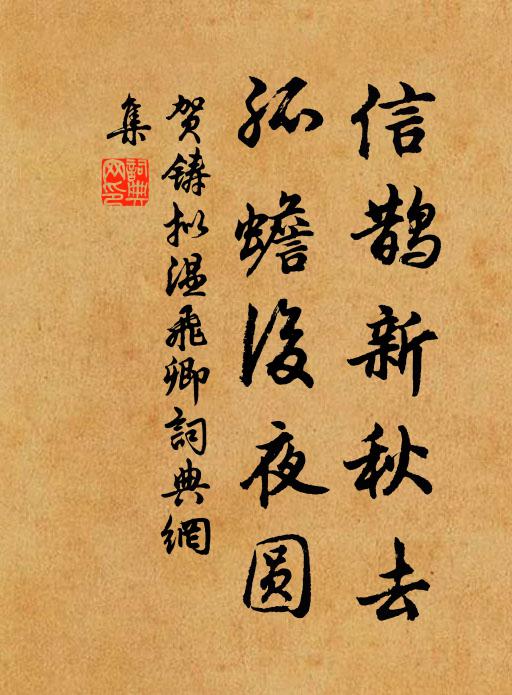 信鹊新秋去
孤蟾后夜圆
贺铸拟温飞卿词典網
集
詞典網印